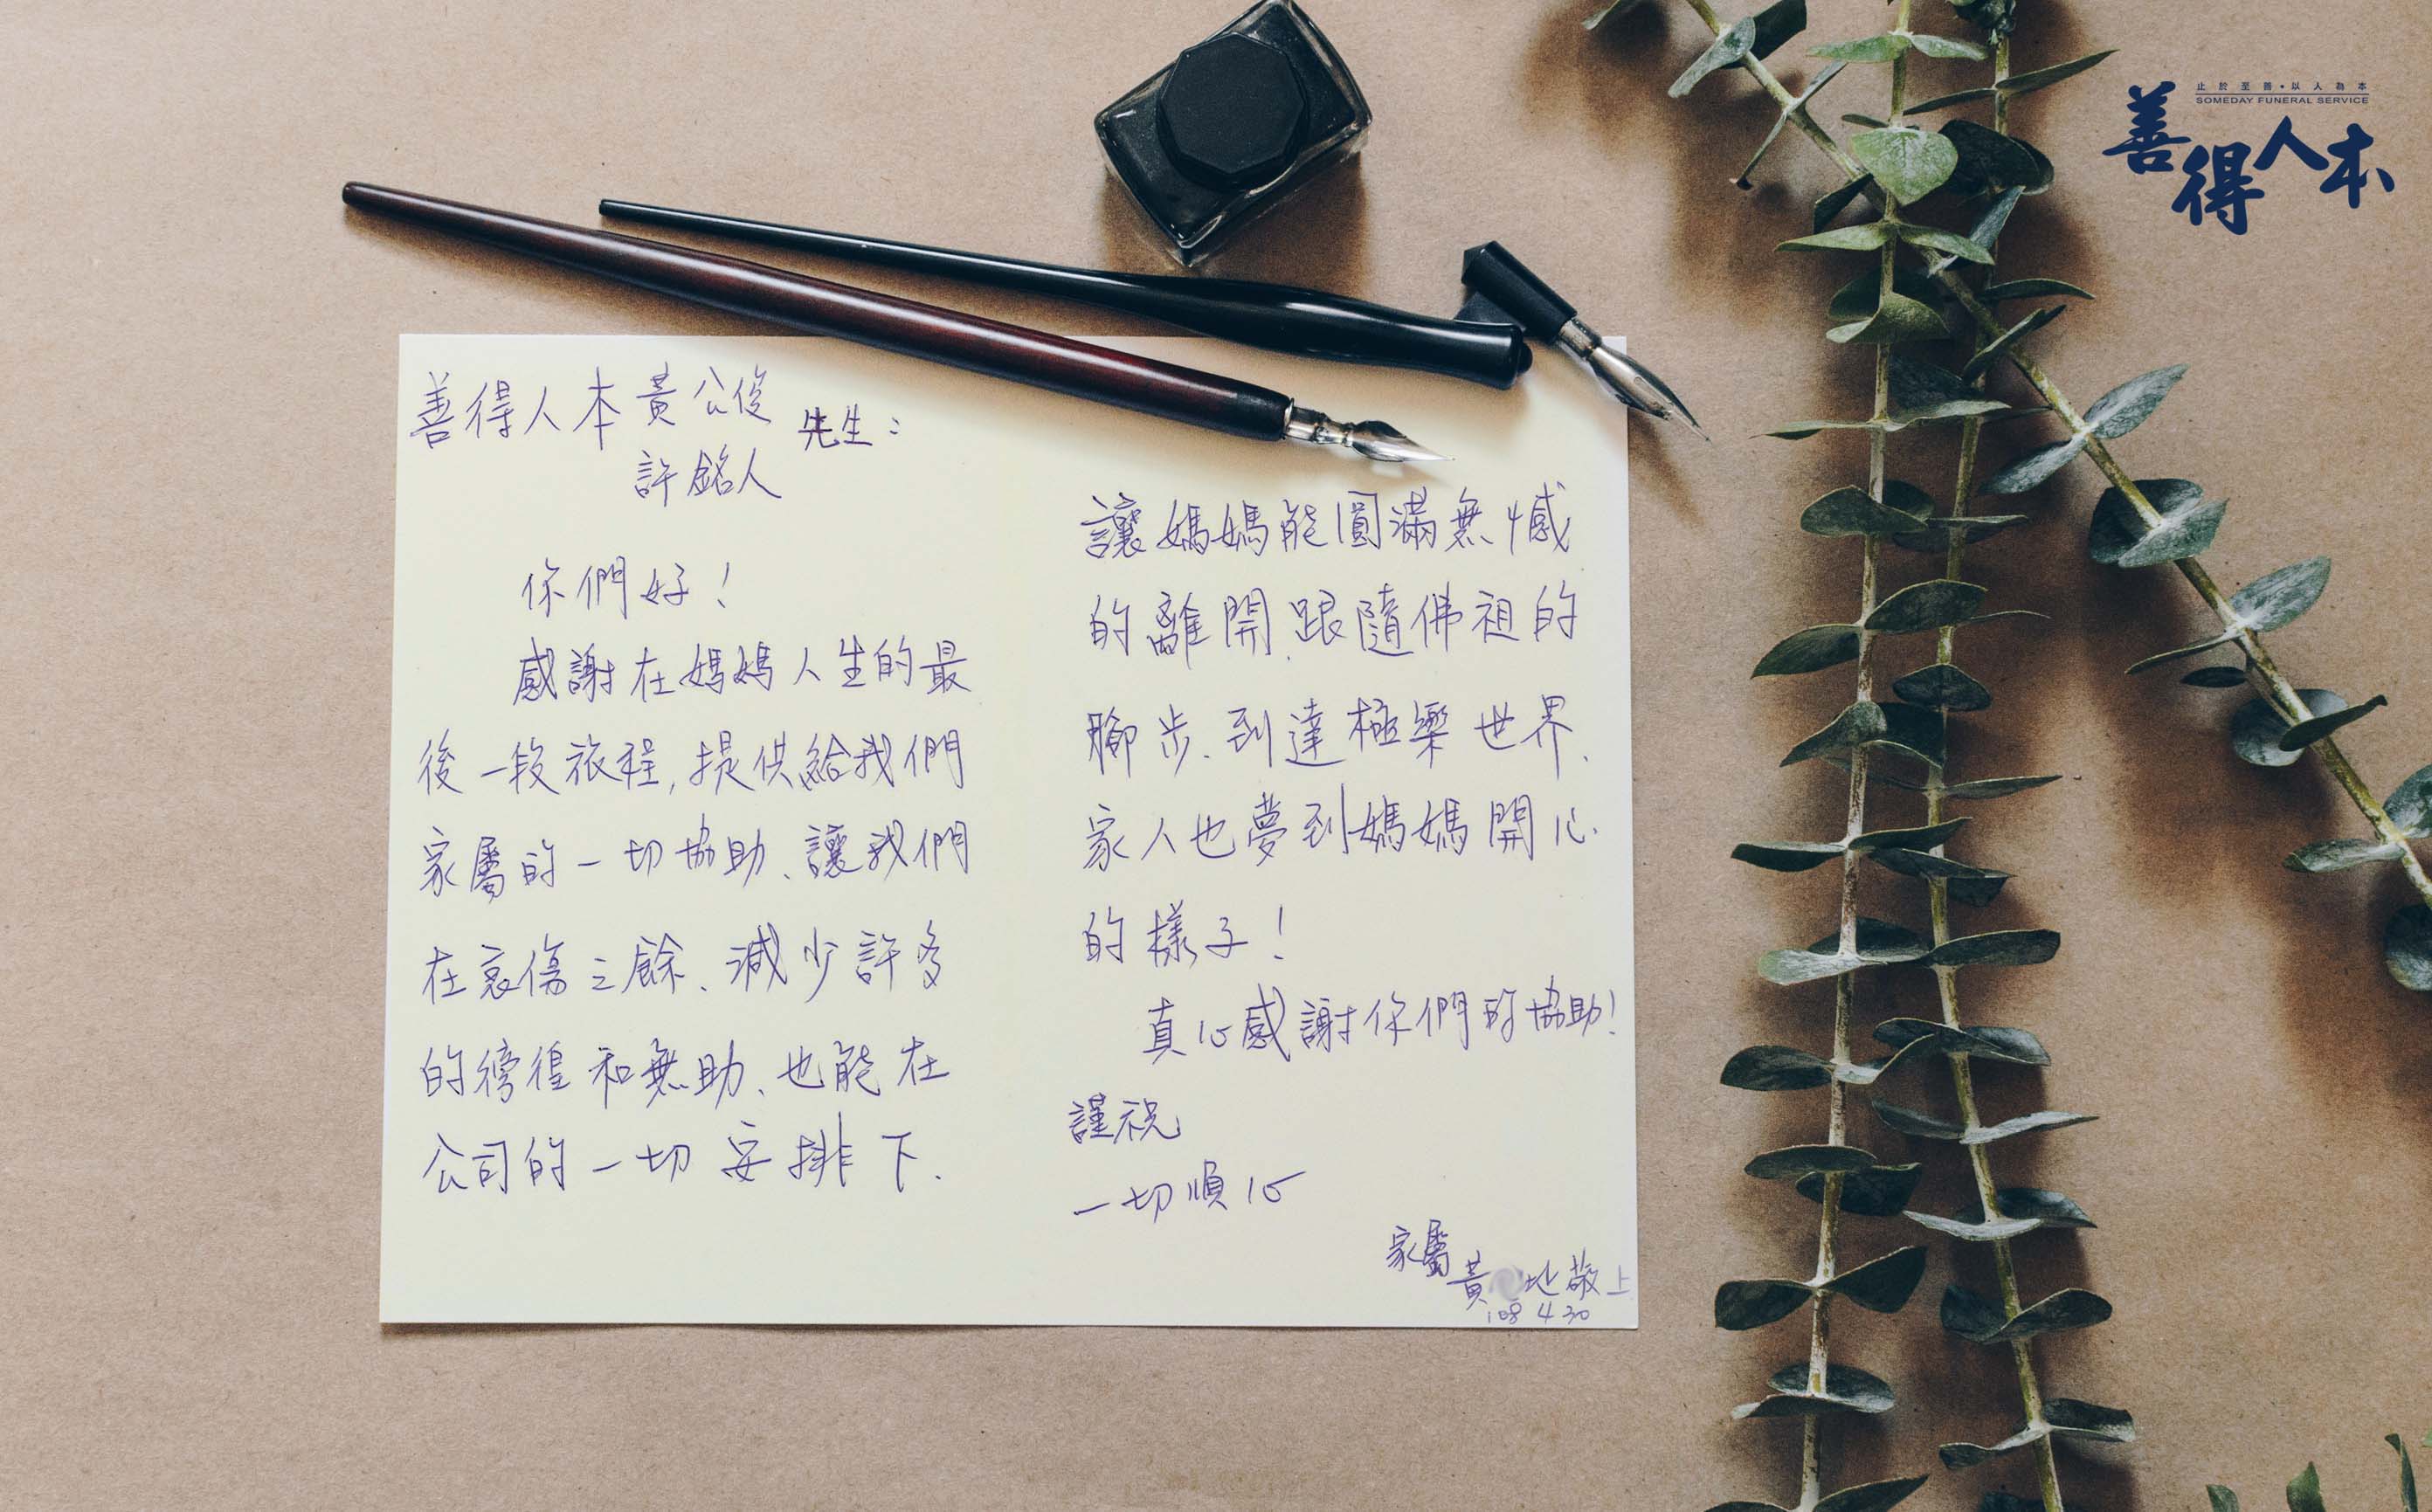 止於至善•以人為本
SOMEDAY FUNERAL SERVICE
善得人本
善得人本黃公俊
許銘人
先生：
你們好！
感謝在媽媽人生的最
後一段旅程,提供給我們
家屬的一切協助、讓我們
在哀傷之餘、減少許多
的徬徨和無助、也能在
公司的一切安排下、
讓媽媽能圓滿無憾
的離開、跟隨佛祖的
腳步、到達極樂世界、
家人也夢到媽媽開心
的樣子！
真心感謝你們的協助！
謹祝
一切順心
家屬
黃 地敬上
108 4 30